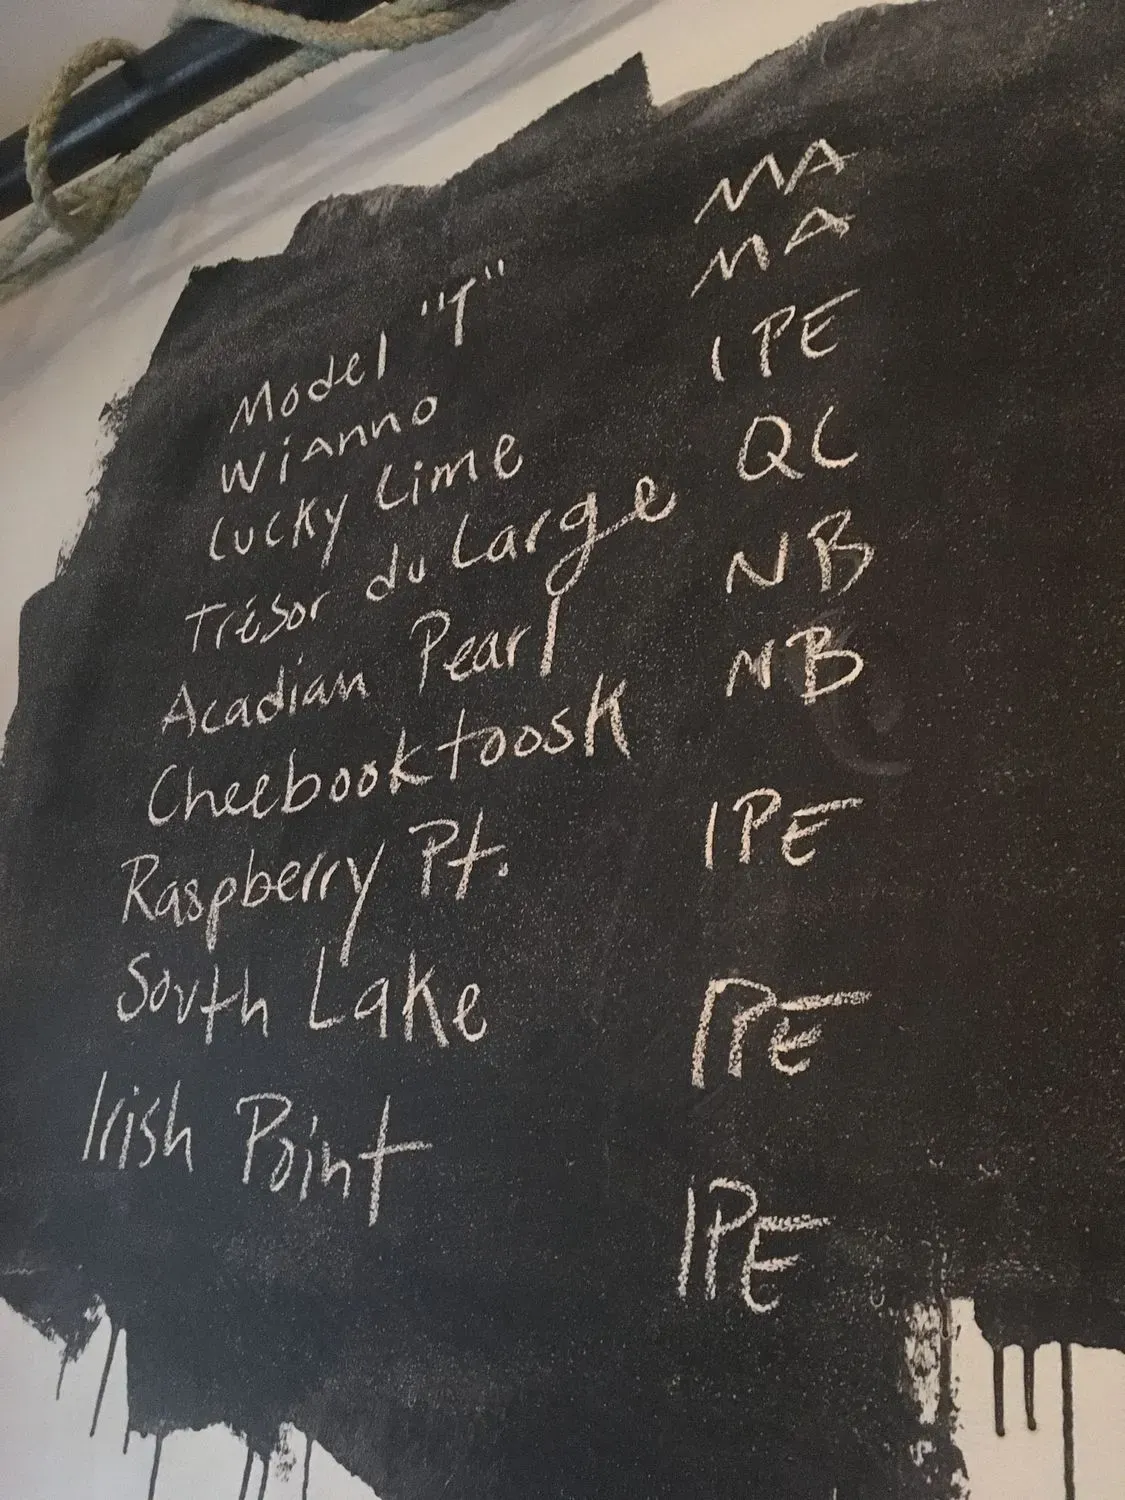 Model "T" MA
Wianno MA
Lucky Lime IPE
Trésor du Large QC
Acadian Pearl NB
Cheebooktoosk NB
Raspberry Pt. IPE
South Lake IPE
Irish Point IPE